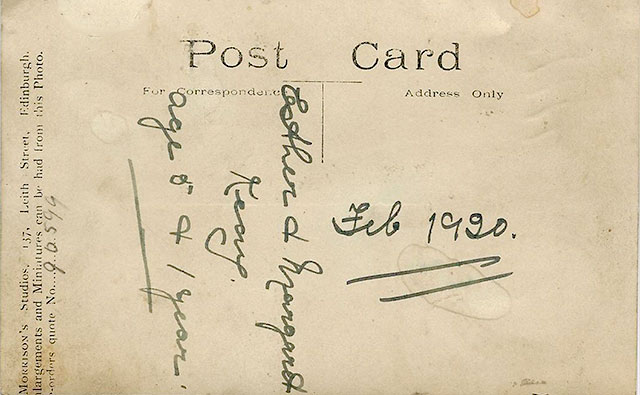 Post Card
For Correspondence
Address Only
Esther & Margaret
Kemp.
age 5 & 1 year
Feb 1920.
Morrison's Studios, 137, Leith Street, Edinburgh.
largements and Miniatures can be had from this Photo.
-orders quote No...9.0.599